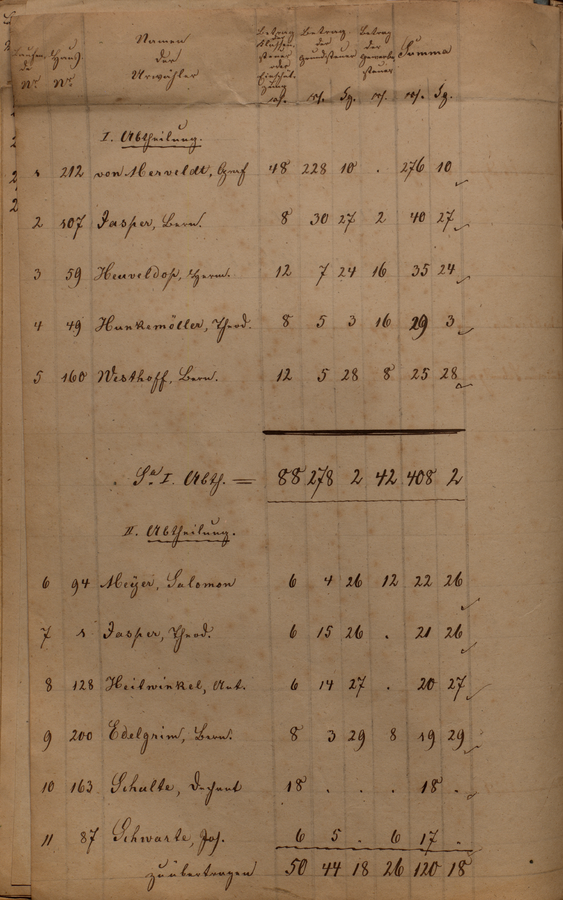 Laufen-
de
Nr.
Haus
Nr.
Namen
der
Urwähler
Betrag
Klassen-
steuer
oder
Einschät-
zung
rh.
Betrag
der
Grundsteuer
rh. Sg.
Betrag
der
Gewerbe
steuer
rh.
Summa
rh. Sg.
I. Abtheilung.
1 212 von Merveldt, Graf 48 228 10 . 276 10
2 107 Jasper, Bern. 8 30 27 2 40 27
3 59 Heuveldop, Herm. 12 7 24 16 35 24
4 49 Hunkemöller, Theod. 8 5 3 16 29 3
5 160 Westhoff, Bern. 12 5 28 8 25 28
Sa. I. Abth. = 88 278 2 42 408 2
II. Abtheilung.
6 94 Meÿer, Salomon 6 4 26 12 22 26
7 1 Jasper, Theod. 6 15 26 . 21 26
8 128 Heitwinkel, Ant. 6 14 27 . 20 27
9 200 Edelgrim, Bern. 8 3 29 8 19 29
10 163 Schulte, Dechant 18 . . . 18 .
11 87 Schwarte, Jos. 6 5 . 6 17 .
zu übertragen 50 44 18 26 120 18